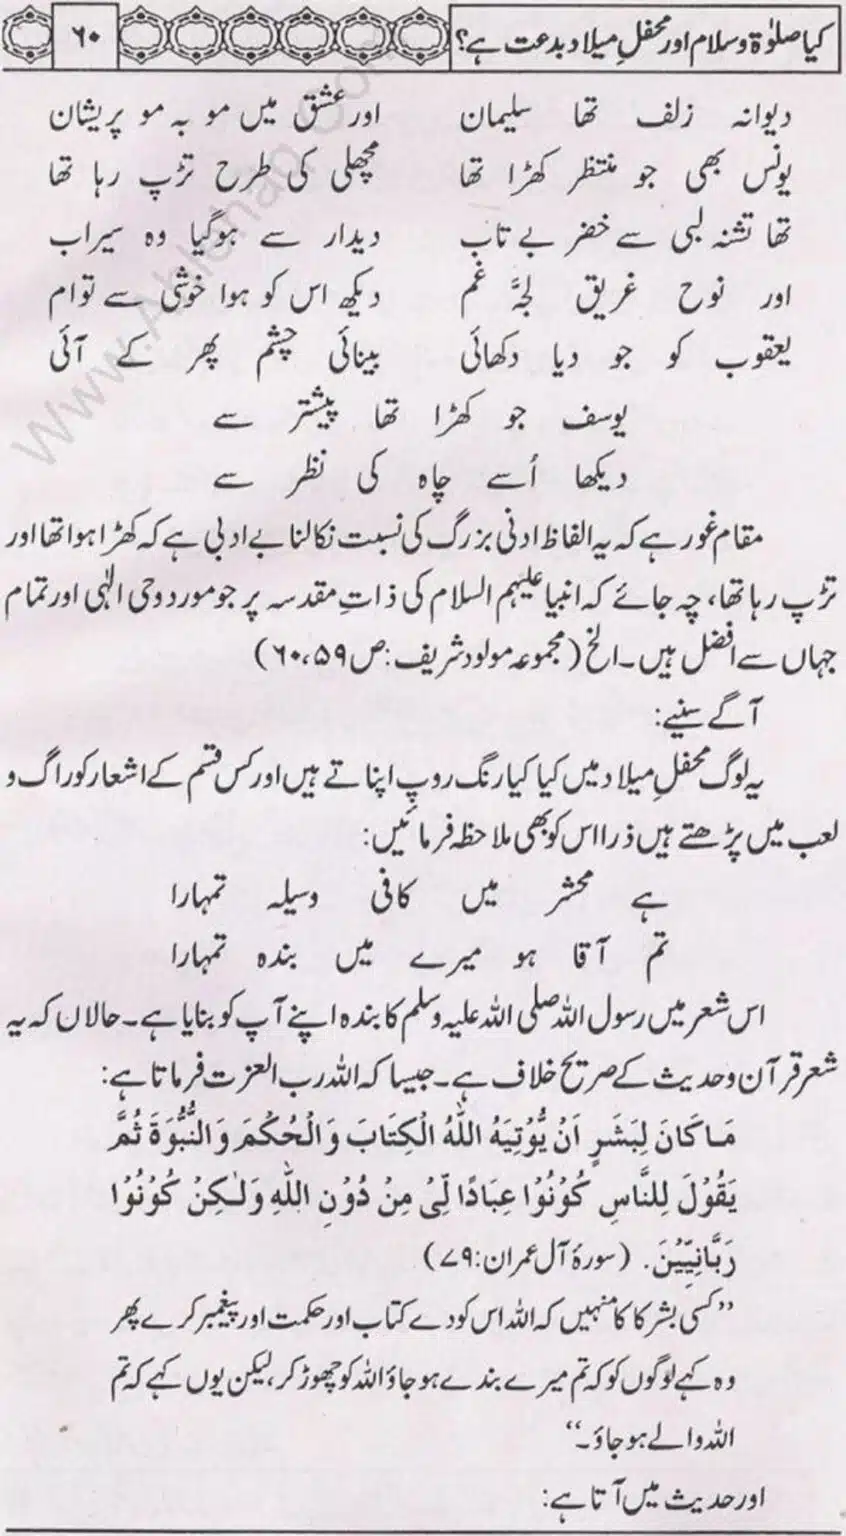 کیا صلوٰۃ و سلام اور محفلِ میلاد بدعت ہے؟ ۶۰
دیوانہ زلف تھا سلیمان اور عشق میں مو بہ مو پریشان
یونس بھی جو منتظر کھڑا تھا مچھلی کی طرح تڑپ رہا تھا
تھا تشنہ لبی سے خضر بے تاب دیدار سے ہوگیا وہ سیراب
اور نوح غریق لجّۂ غم دیکھ اس کو ہوا خوشی سے توام
یعقوب کو جو دیا دکھائی بینائی چشم پھر کے آئی
یوسف جو کھڑا تھا پیشتر سے
دیکھا اُسے چاہ کی نظر سے
مقام غور ہے کہ یہ الفاظ ادنی بزرگ کی نسبت نکالنا بے ادبی ہے کہ کھڑا ہوا تھا اور
تڑپ رہا تھا، چہ جائے کہ انبیا علیہم السلام کی ذاتِ مقدسہ پر جو مورد وحی الٰہی اور تمام
جہاں سے افضل ہیں۔ الخ (مجموعہ مولود شریف: ص ۵۹، ۶۰)
آگے سنیے:
یہ لوگ محفلِ میلاد میں کیا کیا رنگ روپ اپناتے ہیں اور کس قسم کے اشعار کو راگ و
لعب میں پڑھتے ہیں ذرا اس کو بھی ملاحظہ فرمائیں:
ہے محشر میں کافی وسیلہ تمہارا
تم آقا ہو میرے میں بندہ تمہارا
اس شعر میں رسول اللہ صلی اللہ علیہ وسلم کا بندہ اپنے آپ کو بنایا ہے۔ حالاں کہ یہ
شعر قرآن و حدیث کے صریح خلاف ہے۔ جیسا کہ اللہ رب العزت فرماتا ہے:
مَا كَانَ لِبَشَرٍ اَنْ يُّؤْتِيَهُ اللّٰهُ الْكِتَابَ وَالْحُكْمَ وَالنُّبُوَّةَ ثُمَّ
يَقُوْلَ لِلنَّاسِ كُوْنُوْا عِبَادًا لِّىْ مِنْ دُوْنِ اللّٰهِ وَلٰكِنْ كُوْنُوْا
رَبَّانِيّٖنَ. (سورۂ آل عمران: ۷۹)
”کسی بشر کا کام نہیں کہ اللہ اس کو دے کتاب اور حکمت اور پیغمبر کرے پھر
وہ کہے لوگوں کو کہ تم میرے بندے ہو جاؤ اللہ کو چھوڑ کر، لیکن یوں کہے کہ تم
اللہ والے ہو جاؤ۔“
اور حدیث میں آتا ہے: